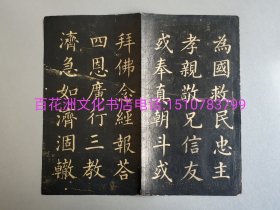 為國救民忠主
孝親敬兄信友
或奉真朝斗或
拜佛念經報答
四恩廣行三教
濟急如濟涸轍
百花洲文化书店电话:1510783799